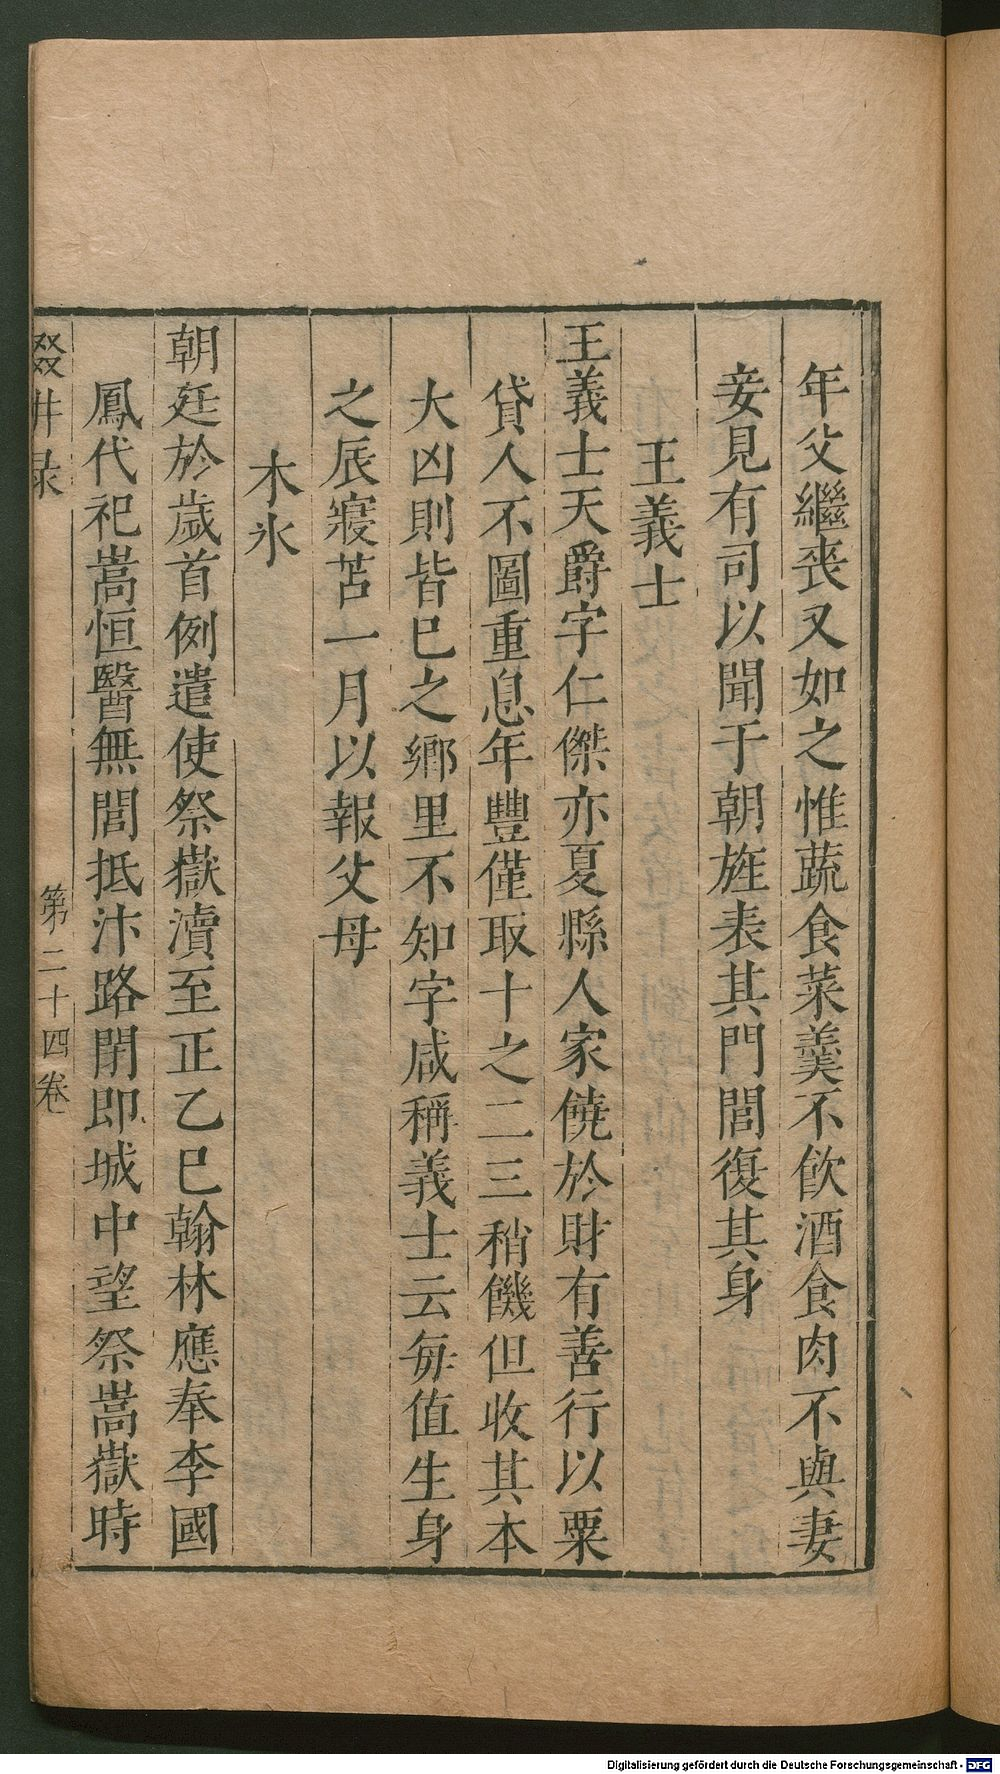 年父繼喪又如之惟蔬食菜羹不飲酒食肉不與妻
妾見有司以聞于朝旌表其門閭復其身
王義士
王義士天爵字仁傑亦夏縣人家饒於財有善行以粟
貸人不圖重息年豐僅取十之二三稍饑但收其本
大凶則皆巳之鄉里不知字咸稱義士云每值生身
之辰寢苫一月以報父母
木氷
朝廷於歲首例遣使祭嶽瀆至正乙巳翰林應奉李國
鳳代祀嵩恒醫無閭抵汴路閉即城中望祭嵩嶽時
第二十四卷
Digitalisierung gefördert durch die Deutsche Forschungsgemeinschaft - DFG